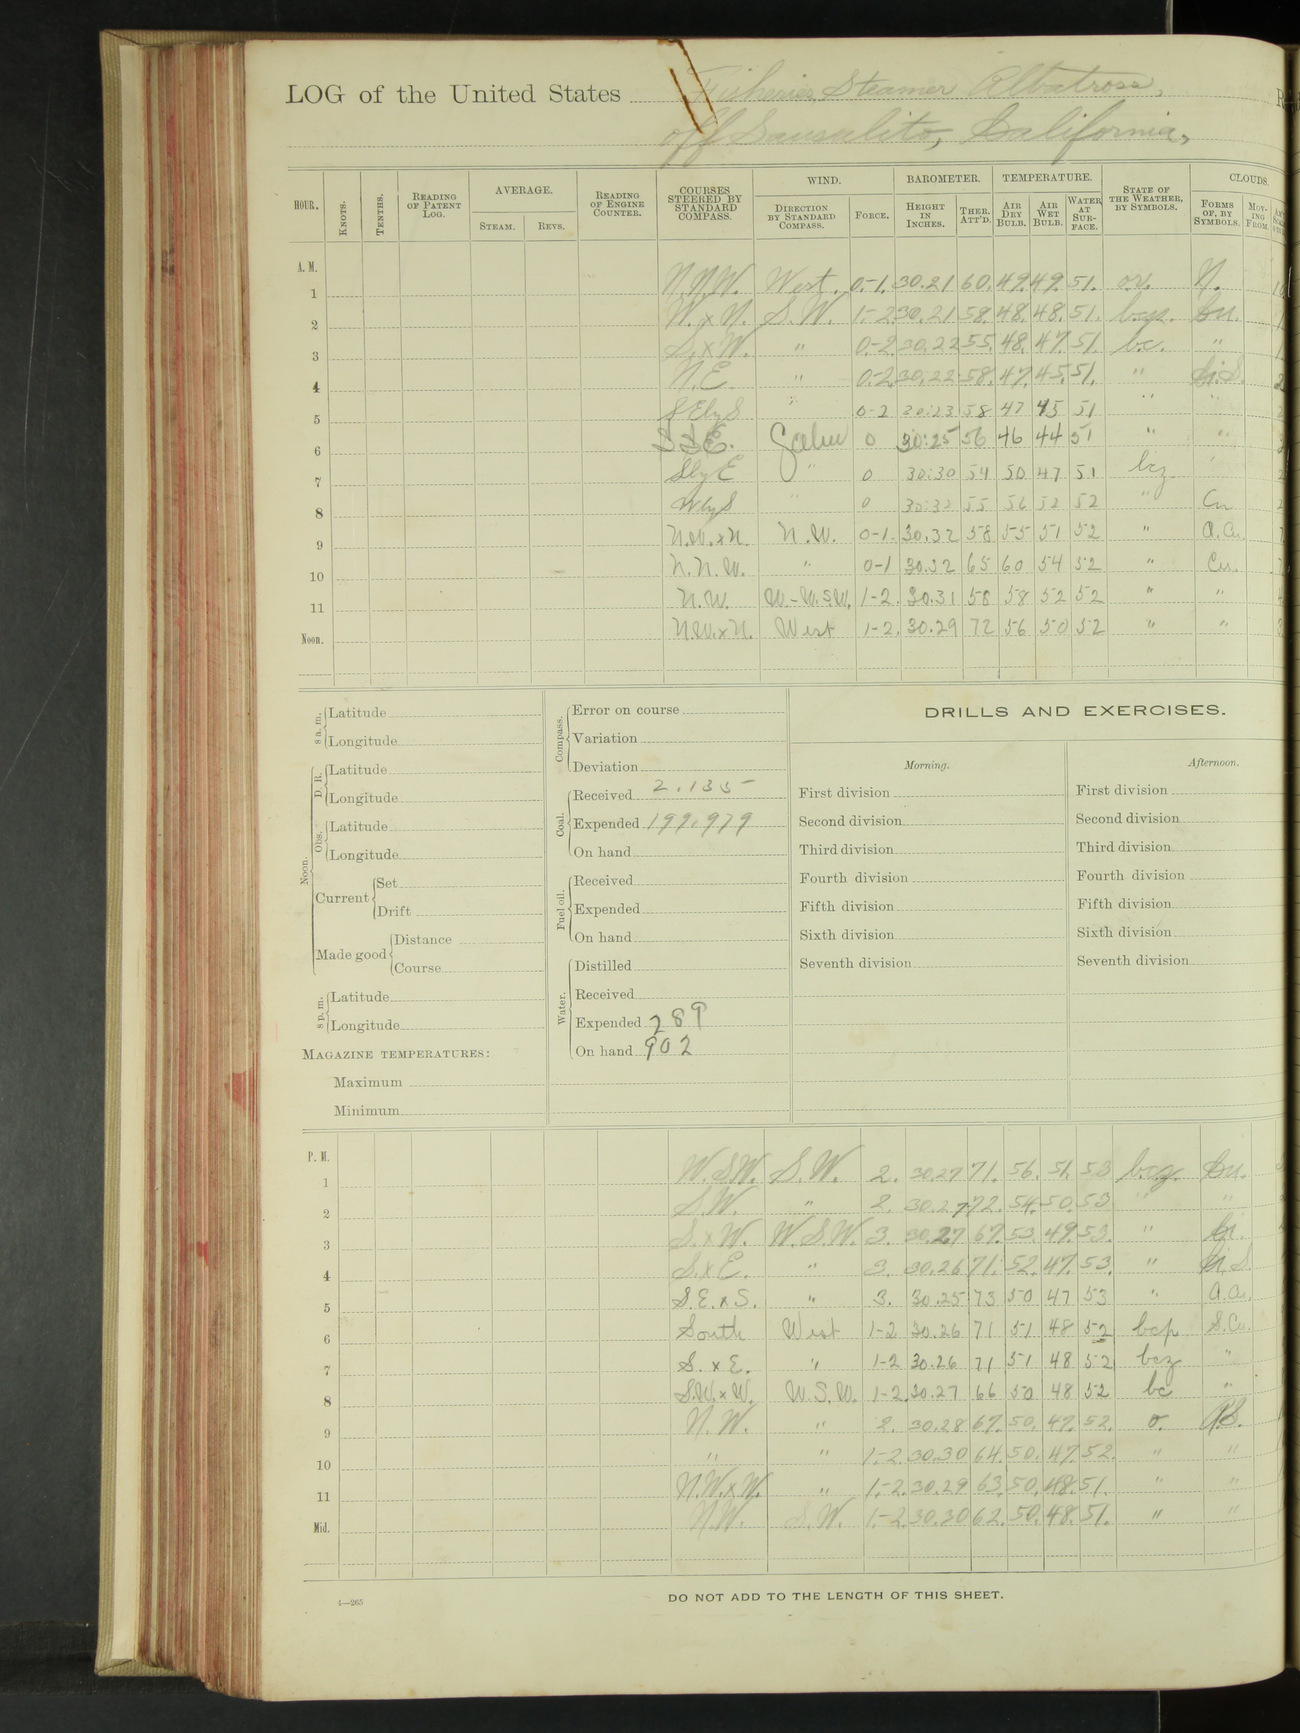 LOG of the United States Fisheries Steamer Albatross,
off Sausalito, California,
HOUR. KNOTS. TENTHS. READING OF PATENT LOG. AVERAGE. STEAM. REVS. READING OF ENGINE COUNTER. COURSES STEERED BY STANDARD COMPASS. WIND. DIRECTION BY STANDARD COMPASS. FORCE. BAROMETER. HEIGHT IN INCHES. THER. ATT'D. TEMPERATURE. AIR DRY BULB. AIR WET BULB. WATER AT SURFACE. STATE OF THE WEATHER, BY SYMBOLS. CLOUDS. FORMS OF, BY SYMBOLS. MOVING FROM.
A. M.
1 N.N.W. West. 0-1. 30.21 60. 49. 49. 51. or. N.
2 N.xN. S.W. 1-2 30.21 58. 48. 48. 51. bcp. Cu.
3 S.xW. " 0-2 30.22 55. 48. 47. 51. bc. "
4 N.E. " 0-2 30.22 58. 47. 45. 51. " Ci.S. 2
5 SEbyS " 0-2 30:23 58 47 45 51 " "
6 SSE. Calm 0 30:25 56 46 44 51 " "
7 SbyE " 0 30:30 54 50 47 51 bcz
8 WbyS " 0 30:32 55 56 52 52 " Cu
9 N.W.xN. N.W. 0-1. 30.32 58 55 51 52 " A.Cu.
10 N.N.W. " 0-1 30.32 65 60 54 52 " Cu.
11 N.W. W-W.S.W. 1-2. 30.31 58 58 52 52 " "
Noon. N.W.xN. West 1-2. 30.29 72 56 50 52 " "
8 a.m. Latitude
Longitude
Noon. D. R. Latitude
Longitude
Obs. Latitude
Longitude
Current Set
Drift
Made good Distance
Course
8 p.m. Latitude
Longitude
MAGAZINE TEMPERATURES:
Maximum
Minimum
Compass. Error on course
Variation
Deviation
Coal. Received 2.135
Expended 199.979
On hand
Fuel oil. Received
Expended
On hand
Water. Distilled
Received
Expended 289
On hand 902
DRILLS AND EXERCISES.
Morning. Afternoon.
First division First division
Second division Second division
Third division Third division
Fourth division Fourth division
Fifth division Fifth division
Sixth division Sixth division
Seventh division Seventh division
P. M.
1 W.S.W. S.W. 2. 30.27 71. 56. 51. 53 bcz. Cu.
2 S.W. " 2. 30.27 72. 54. 50. 53. " "
3 S.xW. W.S.W. 3. 30.27 67. 53. 49. 53. " Ci.
4 S.xE. " 3. 30.26 71. 52. 47. 53. " Ci.S.
5 S.E.xS. " 3. 30.25 73 50 47 53 " A.Cu.
6 South West 1-2 30.26 71 51 48 52 bcp S.Cu.
7 S.xE. " 1-2 30.26 71 51 48 52 bcz "
8 S.W.xW. W.S.W. 1-2. 30.27 66 50 48 52 bc "
9 N.W. " 2. 30.28 67. 50. 47. 52. o. A.S.
10 " " 1-2. 30.30 64. 50. 47. 52. " "
11 N.W.xW. " 1-2. 30.29 63. 50. 48. 51. " "
Mid. N.W. S.W. 1-2. 30.30 62. 50. 48. 51. " "
4—265
DO NOT ADD TO THE LENGTH OF THIS SHEET.